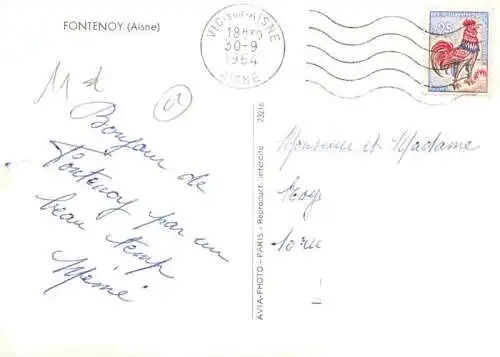 FONTENOY (Aisne)
VIC-SUR-AISNE
18H
30-9
1964
AISNE
0,25
Bonjour de
Fontenoy par un
beau temp
Mémé
AVIA-PHOTO - PARIS - Reproduct. interdite
73216
Monsieur et Madame